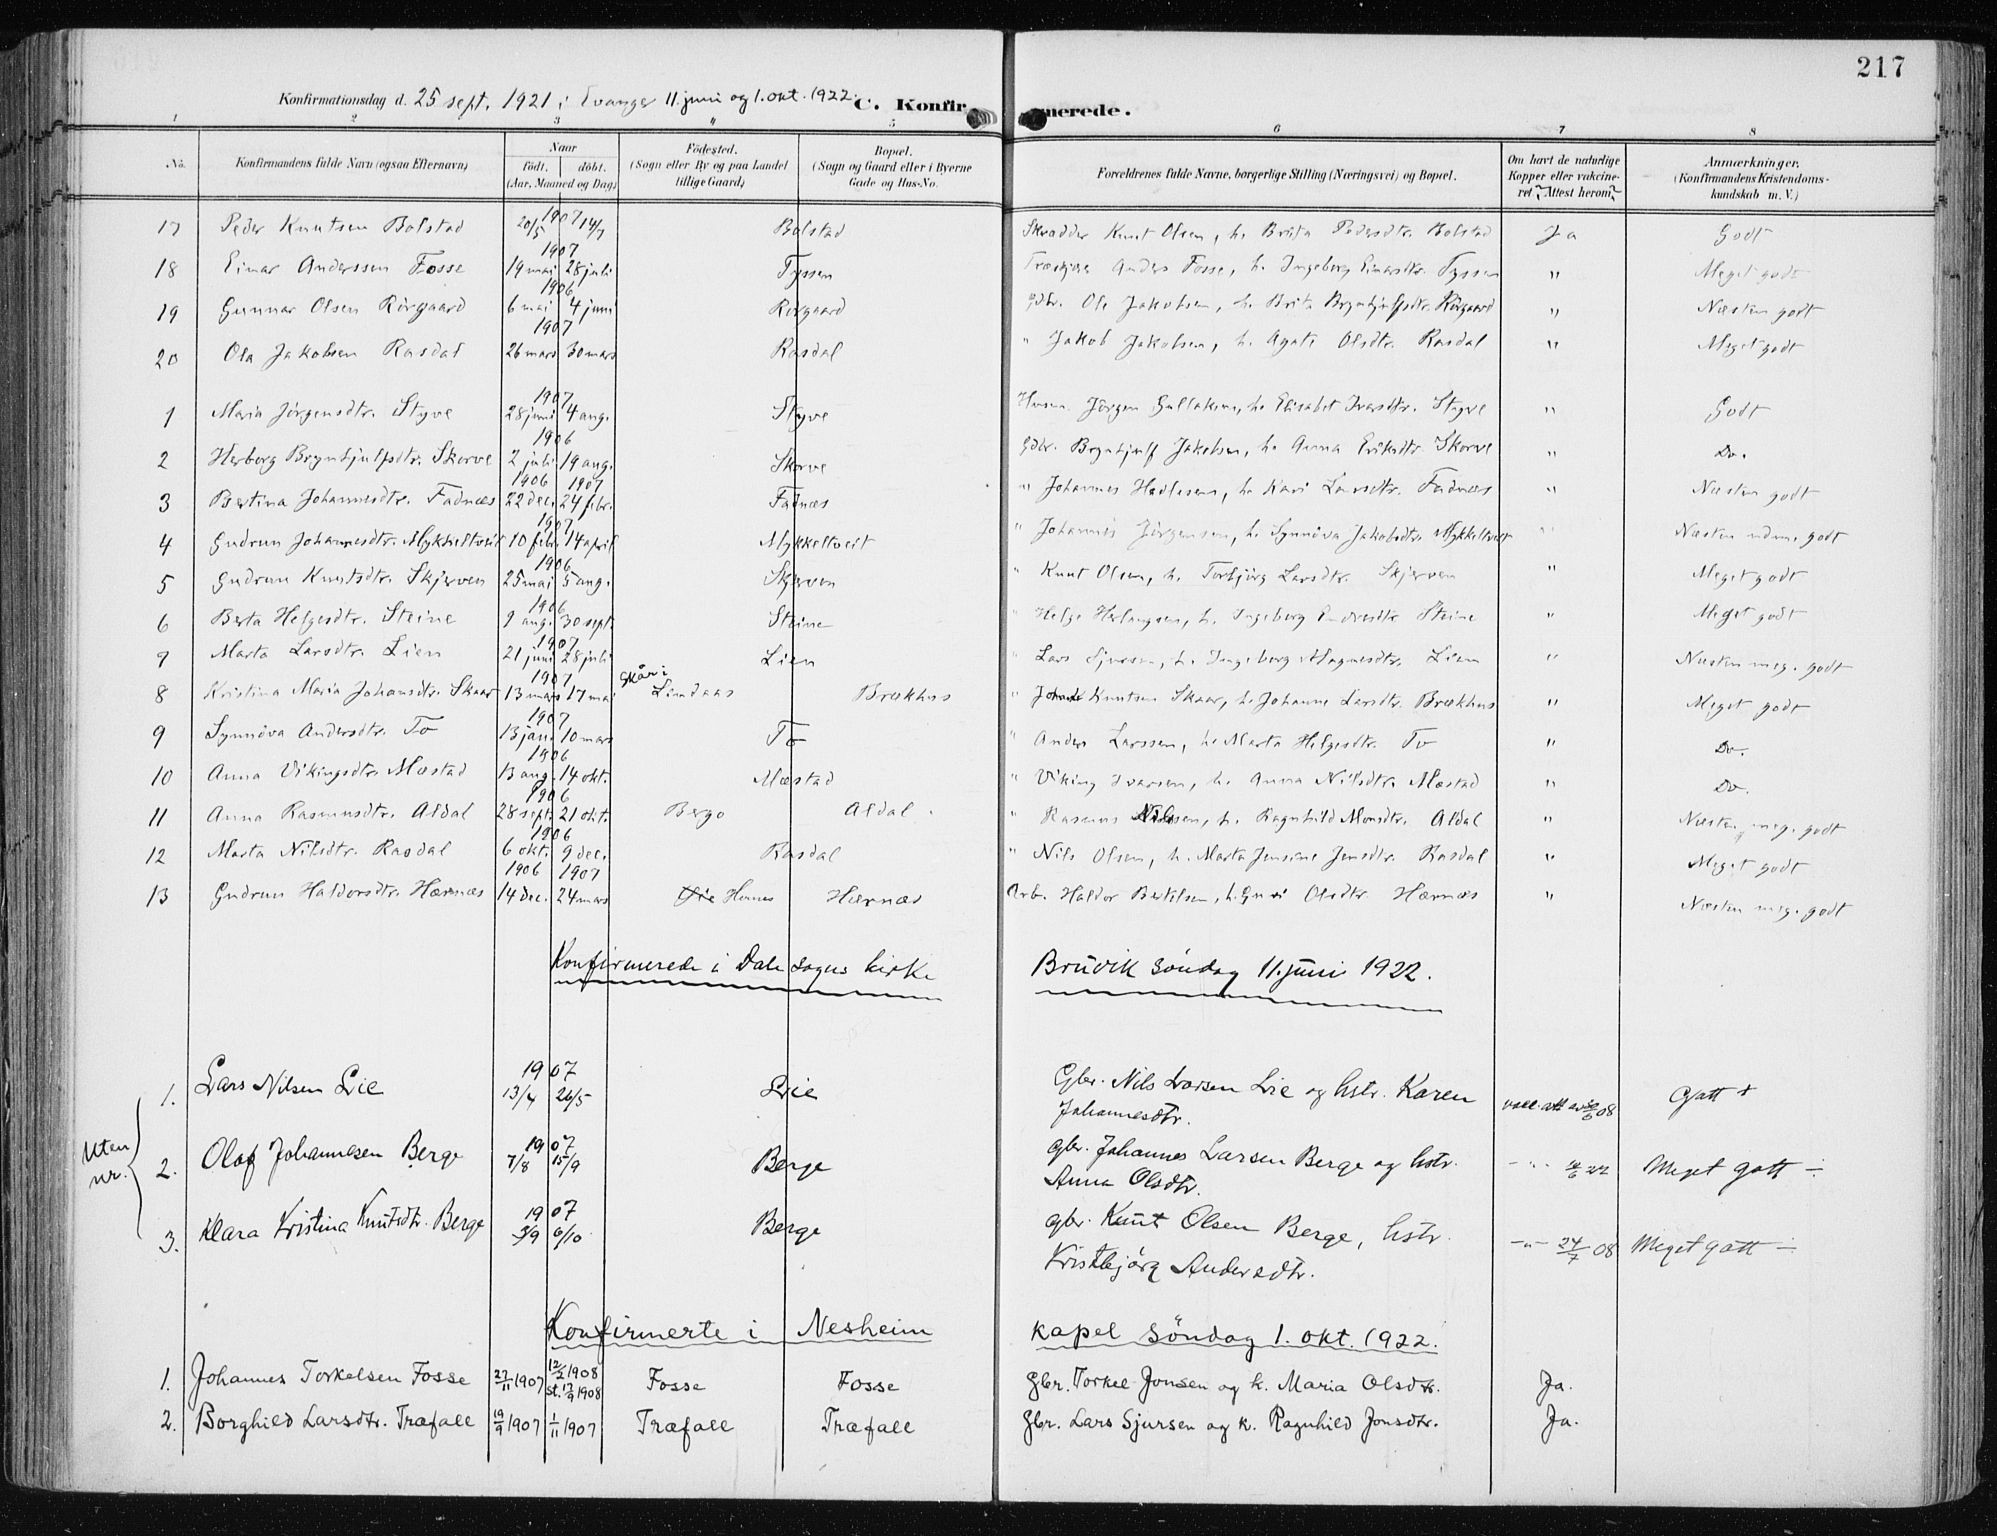 217
Konfirmationsdag d. 25 sept. 1921 i Evanger 11. juni og 1. okt. 1922. C. Konfirmerede.
1 2 3 4 5 6 7 8
No. Konfirmandens fulde Navn (ogsaa Efternavn) Naar født. døbt. (Aar, Maaned og Dag) Fødested. (Sogn eller By og paa Landet tillige Gaard) Bopæl. (Sogn og Gaard eller i Byerne Gade og Hus-No. Forældrenes fulde Navne, borgerlige Stilling (Næringsvei) og Bopæl. Om havt de naturlige Kopper eller vakcineret (Attest herom) Anmærkninger. (Konfirmandens Kristendomskundskab m. V.)
17 Peder Knutsen Bolstad 1907 20/5 14/7 Bolstad Skrædder Knut Olsen, h. Brita Pedersdtr. Bolstad Ja Godt
18 Einar Anderssen Fosse 1907 19 mai 28 juli Tyssen Anders Fosse, h. Ingeborg Einarsdtr. Tyssen " Meget godt
19 Gunnar Olsen Rörgaard 1906 6 mai 4 juni Rörgaard Gdbr. Ole Jakobsen, h. Brita Brynhjulfsdtr. Rörgaard " Næsten godt
20 Ola Jakobsen Rasdal 1907 26 mars 30 mars Rasdal " Jakob Jakobsen, h. Agate Olsdtr. Rasdal " Meget godt
1 Maria Jörgensdtr. Styve 1907 28 juni 4 aug. Styve Husm. Jörgen Gullaksen, h. Elisabet Ivarsdtr. Styve " Godt
2 Herborg Brynhjulfsdtr. Skorve 1906 2 juli 19 aug. Skorve Gdbr. Brynhjulf Jakobsen, h. Anna Eriksdtr. Skorve " Do.
3 Bertina Johannesdtr. Fadnæs 1906 1907 22 dec. 24 febr. Fadnæs " Johannes h. Kari Larsdtr. Fadnæs " Næsten godt
4 Gudrun Johannesdtr. Mykkeltveit 1907 10 febr. 14 april Mykkeltveit " Johannes Jörgensen, h. Synnöva Jakobsdtr. Mykkeltveit " Næsten udm. godt
5 Gudrun Knutsdtr. Skjerven 1906 25 mai 5 aug. Skjerven " Knut Olsen, h. Torbjörg Larsdtr. Skjerven " Meget godt
6 Berta Helgesdtr. Steine 1906 9 aug. 30 sept. Steine " Helge h. Ingeborg Endresdtr. Steine " Meget godt
7 Marta Larsdtr. Lien 1907 21 juni 28 juli Lien " Lars Sjursen, h. Ingeborg Magnesdtr. Lien " Næsten meg. godt
8 Kristina Maria Johansdtr. Skaar 1907 13 mars 17 mai Skår i Lindaas Brækhus " Johan Knutsen Skaar, h. Johanne Larsdtr. Brækhus " Meget godt
9 Synnöva Andersdtr. To 1907 13 jan. 10 mars To " Anders Larssen, h. Marta Helgesdtr. To " Do.
10 Anna Vikingsdtr. Mæstad 1906 13 aug. 14 okt. Mæstad " Viking Ivarsen, h. Anna Nilsdtr. Mæstad " Do.
11 Anna Rasmusdtr. Aldal 1906 28 sept. 21 okt. Bergo Aldal " Rasmus Nilssen, h. Ragnhild Monsdtr. Aldal " Næsten meg. godt
12 Marta Nilsdtr. Rasdal 1906 6 okt. 9 dec. Rasdal " Nils Olsen, h. Marta Jensine Jensdtr. Rasdal " Meget godt
13 Gudrun Haldorsdtr. Hærnæs 1906 1907 14 dec. 24 mars Hernes Hærnæs Arb. Haldor Bertilsen, h. Guri Olsdtr. Hærnæs " Næsten meg. godt
Konfirmerede i Dale sogns kirke Bruvik söndag 11. juni 1922.
Uten nr.
1. Lars Nilsen Lie 1907 13/4 26/5 Lie Gbr. Nils Larsen Lie og hstr. Karen
Johannesdtr. 08 Gott +
2. Olaf Johannesen Berge 1907 7/8 15/9 Berge gbr. Johannes Larsen Berge og hstr.
Anna Olsdtr. - " - 22 Meget gott ÷
3. Klara Kristina Knutsdtr. Berge 1907 3/9 6/10 Berge gbr. Knut Olsen Berge, hstr.
Kristbjörg Andersdtr. - " - 24/7 08 Meget gott ÷
Konfirmerte i Nesheim kapel söndag 1. okt. 1922.
1. Johannes Torkelsen Fosse 27/11 1907 12/2 1908 st. 13/9 1908 Fosse Fosse Gbr. Torkel Jonsen og k. Maria Olsdtr. Ja.
2. Borghild Larsdtr. Træfall 19/9 1907 1/11 1907 Træfall Træfall Gbr. Lars Sjursen og k. Ragnhild Jonsdtr. Ja.